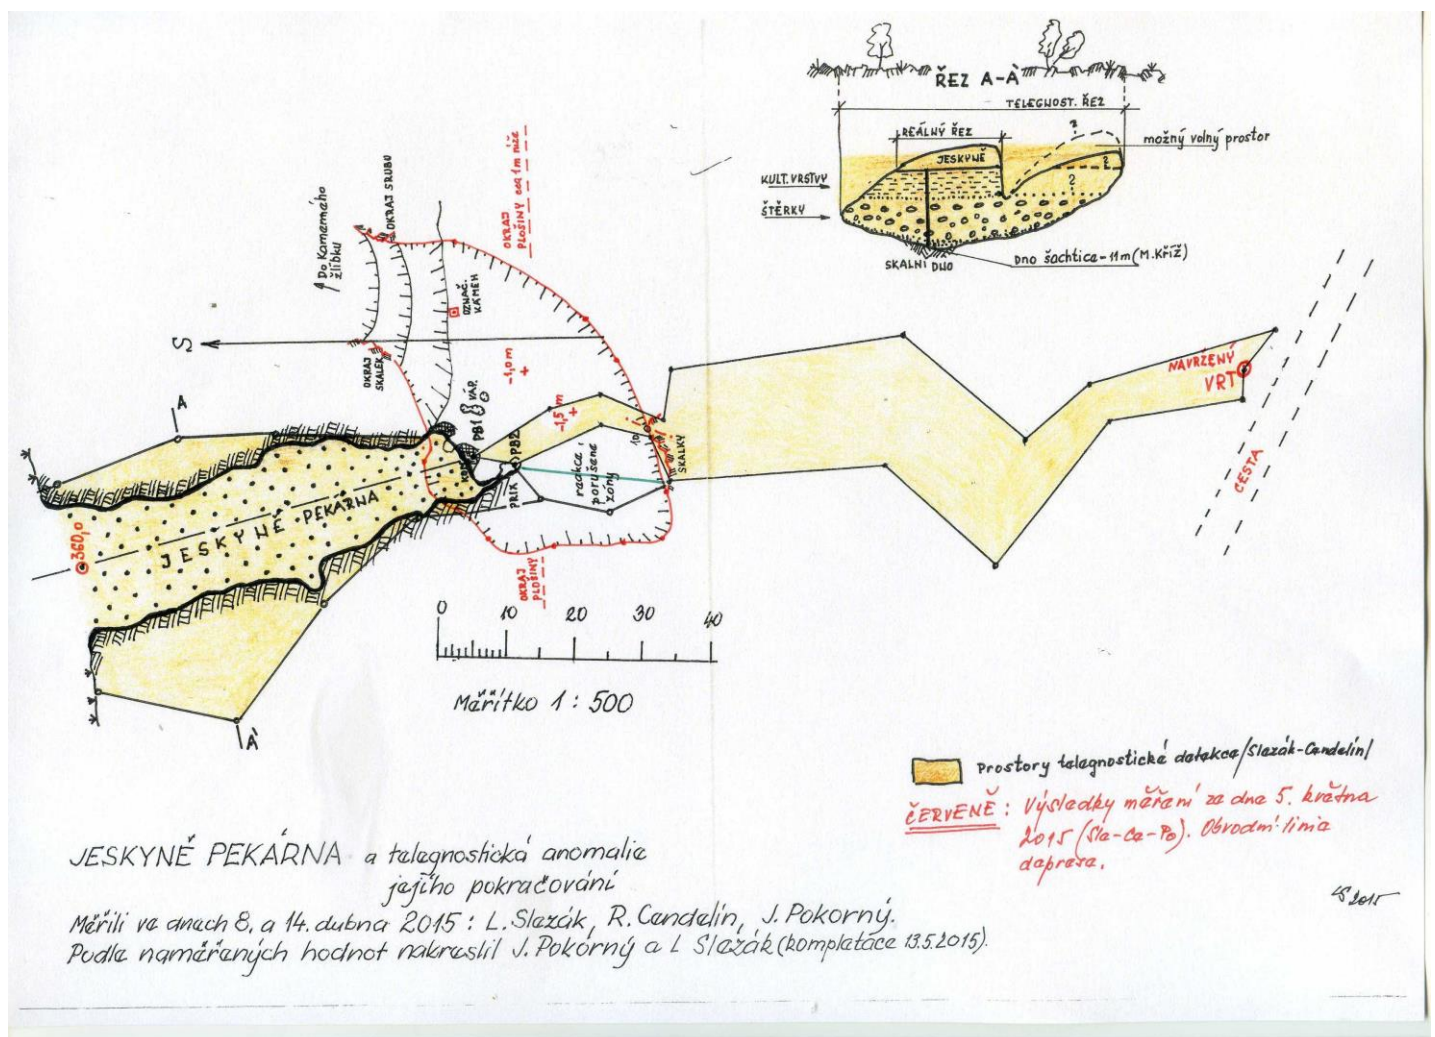 ŘEZ A-À
TELEGNOST. ŘEZ
REÁLNÝ ŘEZ
možný volný prostor
JESKYNĚ
KULT. VRSTVY
ŠTĚRKY
SKALNÍ DNO
Dno šachtice -11m (M.Kříž)
?
?
?
Do Kamenného
žlíbku
OKRAJ SRUBU
OKRAJ
PLOŠINY cca 1m níže
OZNAČ.
KÁMEN
S
OKRAJ
SKALEK
-1,0 m
+
VÁP.
PB1
PB2
-1,5 m
+
SKALKY
radkce
porušené
zóny
A
JESKYNĚ PEKÁRNA
360,0
À
OKRAJ
PLOŠINY
NAVRŽENÝ
VRT
CESTA
0 10 20 30 40
Měřítko 1 : 500
Prostory telegnostické detekce /Slezák-Cendelín/
ČERVENĚ : Výsledky měření ze dne 5. května
2015 (Sle-Ce-Po). Obvodní linie
deprese.
JESKYNĚ PEKÁRNA a telegnostická anomalie
jejího pokračování
Měřili ve dnech 8. a 14. dubna 2015 : L. Slezák, R. Cendelín, J. Pokorný.
Podle naměřených hodnot nakreslil J. Pokorný a L Slezák (kompletace 13.5.2015).
LS 2015